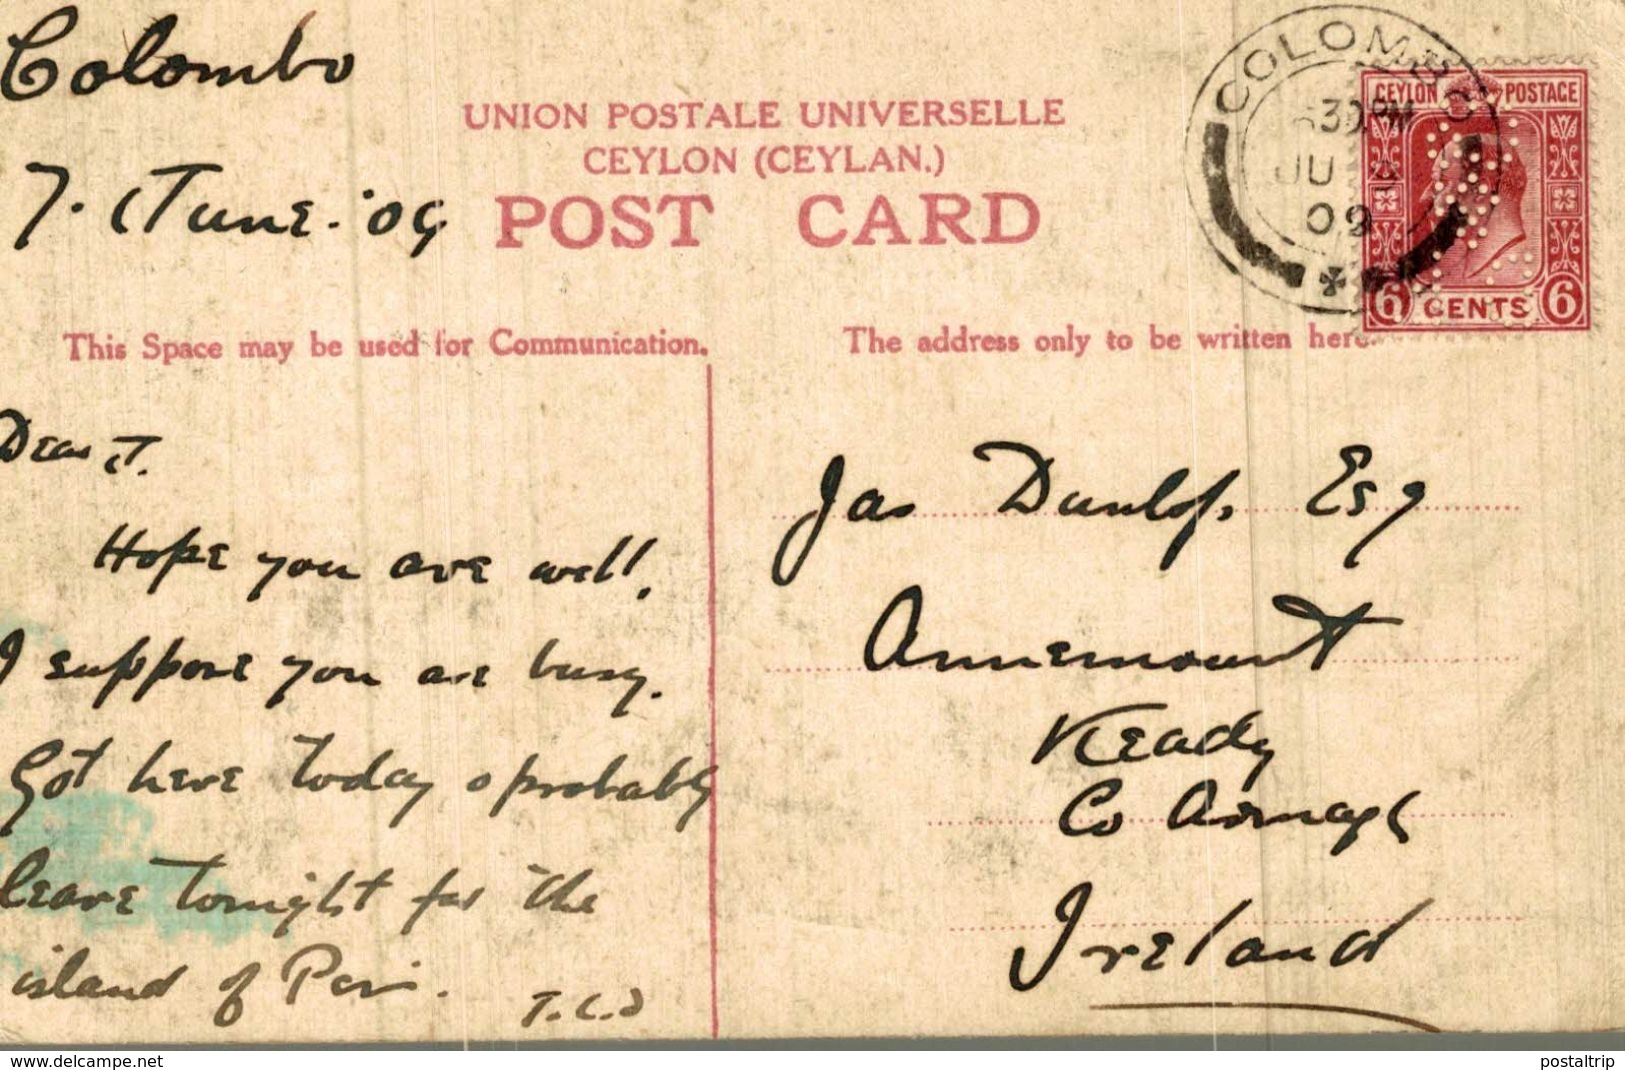 Colombo
7. June. '09
UNION POSTALE UNIVERSELLE
CEYLON (CEYLAN.)
POST CARD
COLOMBO
30 PM
JU
09
CEYLON POSTAGE
6 CENTS 6
This Space may be used for Communication.
The address only to be written here.
Dear J.
Hope you are well.
I suppose you are busy.
Got here today & probably
leave tonight for the
island of
Jas Dunlop. Esq
Annemount
Keady
Co Armagh
Ireland
www.delcampe.net
postaltrip